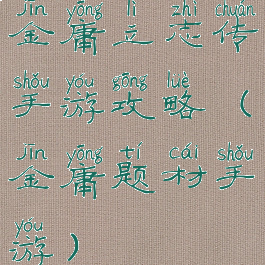 jīn yōng lì zhì chuán
金庸立志传
shǒu yóu gōng lüè
手游攻略（
jīn yōng tí cái shǒu
金庸题材手
yóu
游）